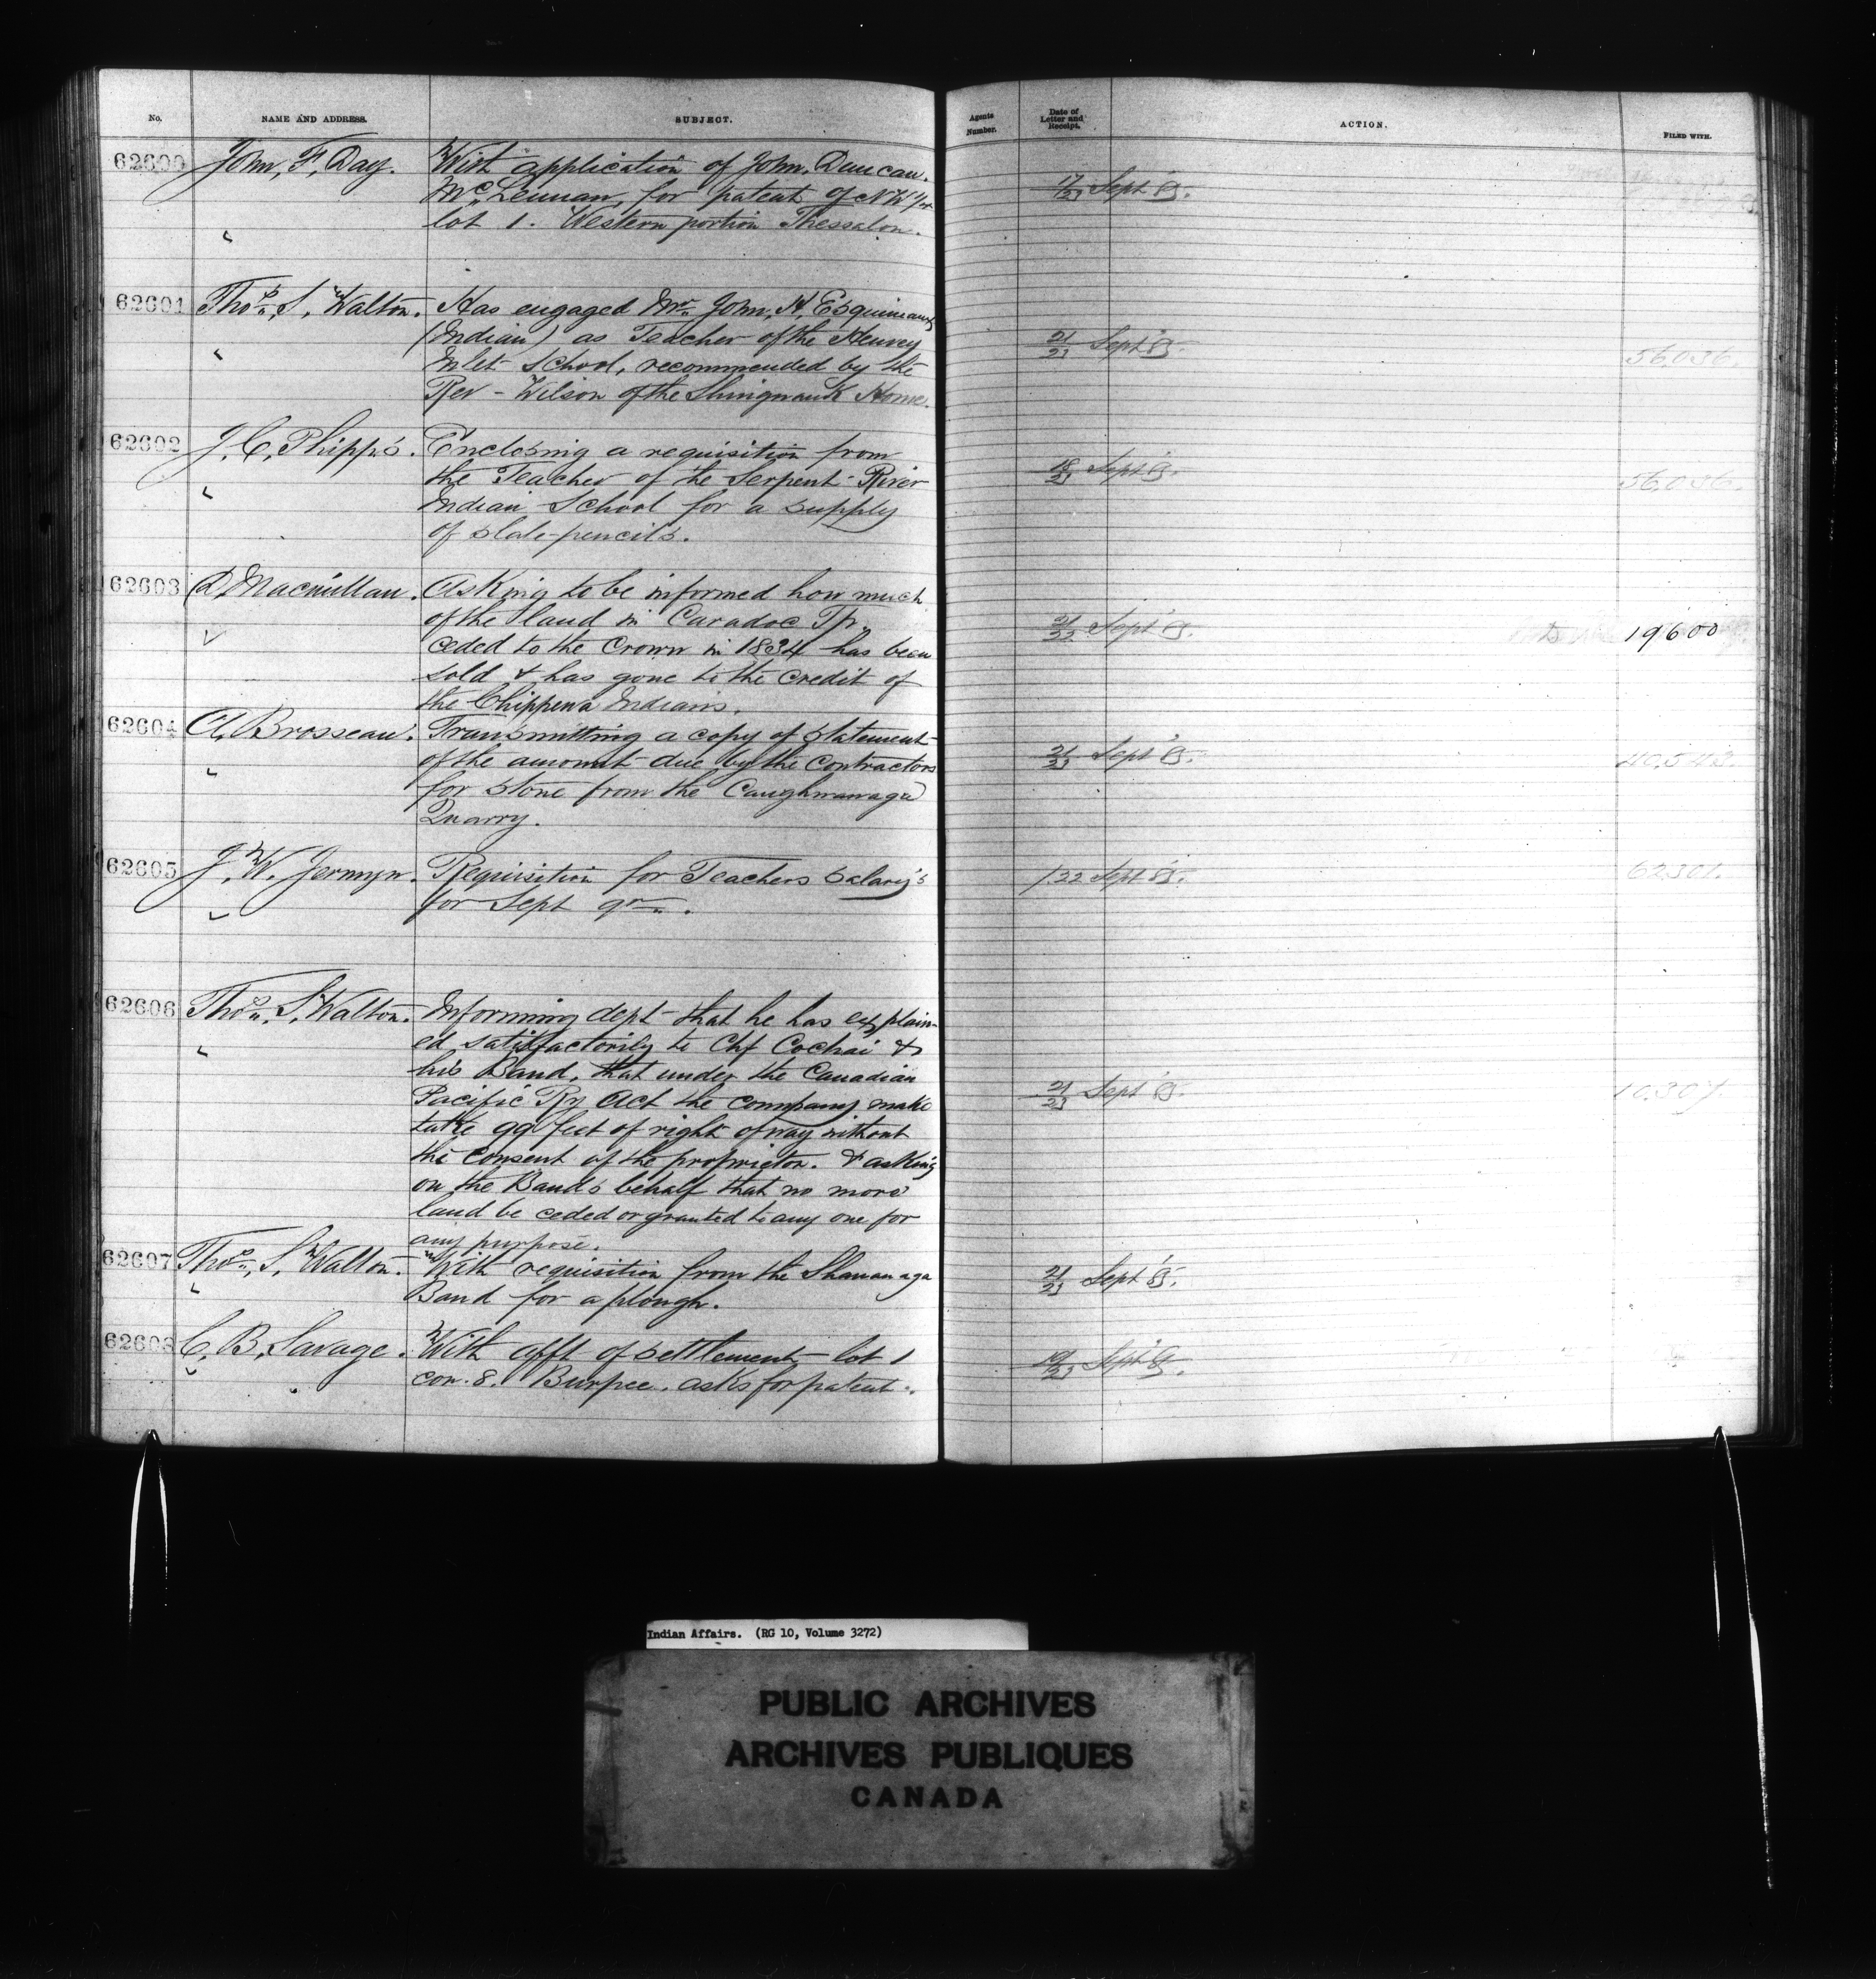 No. NAME AND ADDRESS. SUBJECT. Agents Number. Date of Letter and Receipt. ACTION. FILED WITH.
62600 John, F, Day. With application of John, Duncan.
Mc Lennan, for patent of NW 1/4
lot 1. Western portion Thessalon.
17/23 Sept 85.
62601 Thos, S, Walton. Has engaged Mr John, H, Esquimaux
(Indian) as Teacher of the Henvey
Inlet School, recommended by the
Rev - Wilson of the Shingwauk Home.
21/23 Sept 85. 56,036.
62602 J, C, Phipps. Enclosing a requisition from
the Teacher of the Serpent River
Indian School for a supply
of slate-pencils.
18/23 Sept 85. 56,036.
62603 D, Macmillan. Asking to be informed how much
of the land in Caradoc Tp.
ceded to the Crown in 1834 has been
sold & has gone to the credit of
the Chippewa Indians.
21/22 Sept 85. 19600
62604 A, Brosseau. Transmitting a copy of statement
of the amount due by the Contractors
for stone from the Caughnawaga
Quarry.
21/23 Sept 85. 40,543.
62605 J, W, Jermyn. Requisition for Teachers salary's
for Sept qr.
/22 Sept 85. 62301.
62606 Thos, S, Walton. Informing dept that he has explain-
ed satisfactorily to Chf Cochai &
his Band, that under the Canadian
Pacific Ry Act the company make
take 99 feet of right of way without
the consent of the proprietor. & asking
on the Bands behalf that no more
land be ceded or granted to any one for
any purpose.
21/23 Sept 85. 10.307.
62607 Thos, S, Walton. With requisition from the Shawanaga
Band for a plough.
21/23 Sept 85.
62608 C, B, Savage. With afft of settlement lot 1
con. 8. Burpee. asks for patent.
19/23 Sept 85.
Indian Affairs. (RG 10, Volume 3272)
PUBLIC ARCHIVES
ARCHIVES PUBLIQUES
CANADA